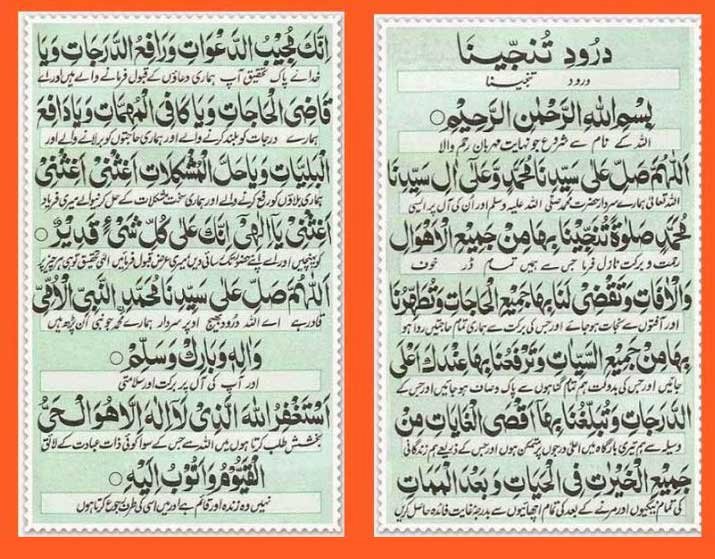 درُودِ تُنَجِّينَا
درود تنجینا
بِسْمِ اللهِ الرَّحْمٰنِ الرَّحِيْمِ ○
اللہ کے نام سے شروع جو نہایت مہربان رحم والا
اَللّٰهُمَّ صَلِّ عَلٰى سَيِّدِنَا مُحَمَّدٍ وَّعَلٰٓى اٰلِ سَيِّدِنَا
اللہ تعالیٰ ہمارے سردار حضرت محمد صلی اللہ علیہ وسلم اور ان کی آل پر ایسی
مُحَمَّدٍ صَلٰوةً تُنَجِّيْنَا بِهَا مِنْ جَمِيْعِ الْاَهْوَالِ
رحمت و برکت نازل فرما جس سے ہمیں تمام ڈر خوف
وَالْاٰفَاتِ وَتَقْضِىْ لَنَا بِهَا جَمِيْعَ الْحَاجَاتِ وَتُطَهِّرُنَا
اور آفتوں سے نجات ہو جائے اور جس کی برکت سے ہماری تمام حاجتیں روا ہو
بِهَا مِنْ جَمِيْعِ السَّيِّاٰتِ وَتَرْفَعُنَا بِهَا عِنْدَكَ اَعْلٰى
جائیں اور جس کی بدولت ہم تمام گناہوں سے پاک و صاف ہو جائیں اور جس کے
الدَّرَجَاتِ وَتُبَلِّغُنَا بِهَا اَقْصَى الْغَايَاتِ مِنْ
وسیلہ سے ہم تیری بارگاہ میں اعلیٰ درجوں پر متمکن ہوں اور جس کے ذریعے ہم زندگانی
جَمِيْعِ الْخَيْرٰتِ فِى الْحَيَاتِ وَبَعْدَ الْمَمَاتِ
کی تمام نیکیوں اور مرنے کے بعد کی تمام اچھائیوں سے بدرجہ غایت فائدہ حاصل کریں
اِنَّكَ مُجِيْبُ الدَّعَوَاتِ وَرَافِعُ الدَّرَجَاتِ وَيَا
خدائے پاک تحقیق آپ ہماری دعاؤں کے قبول فرمانے والے ہیں اور اے
قَاضِىَ الْحَاجَاتِ وَيَا كَافِىَ الْمُهِمَّاتِ وَيَا دَافِعَ
ہمارے درجات کو بلند کرنے والے اور ہماری حاجتوں کو بر لانے والے اور
الْبَلِيَّاتِ وَيَا حَلَّ الْمُشْكِلَاتِ اَغِثْنِىْ اَغِثْنِىْ
ہماری بلاؤں کو رفع کرنے والے اور ہماری سخت مشکلات کے حل کرنیوالے میری فریاد
اَغِثْنِىْ يَآ اِلٰهِىْ اِنَّكَ عَلٰى كُلِّ شَىْءٍ قَدِيْرٌ ○
کو پہنچیں اور اسے اپنے حضور تک رسائی دیں میری عرض قبول فرمائیں الٰہی تحقیق تو ہی ہر چیز پر
اَللّٰهُمَّ صَلِّ عَلٰى سَيِّدِنَا مُحَمَّدِ النَّبِىِّ الْاُمِّىِّ
قادر ہے اے اللہ درود بھیج اوپر سردار ہمارے محمد جو نبی ان پڑھ ہیں
وَاٰلِهٖ وَبَارِكْ وَسَلِّمْ ○
اور آپ کی آل پر برکت اور سلامتی
اَسْتَغْفِرُ اللهَ الَّذِىْ لَآ اِلٰهَ اِلَّا هُوَ الْحَىُّ
بخشش طلب کرتا ہوں میں اللہ سے جس کے سوا کوئی ذات عبادت کے لائق
الْقَيُّوْمُ وَاَتُوْبُ اِلَيْهِ ○
نہیں وہ زندہ اور قائم ہے اور میں اسی کی طرف رجوع کرتا ہوں